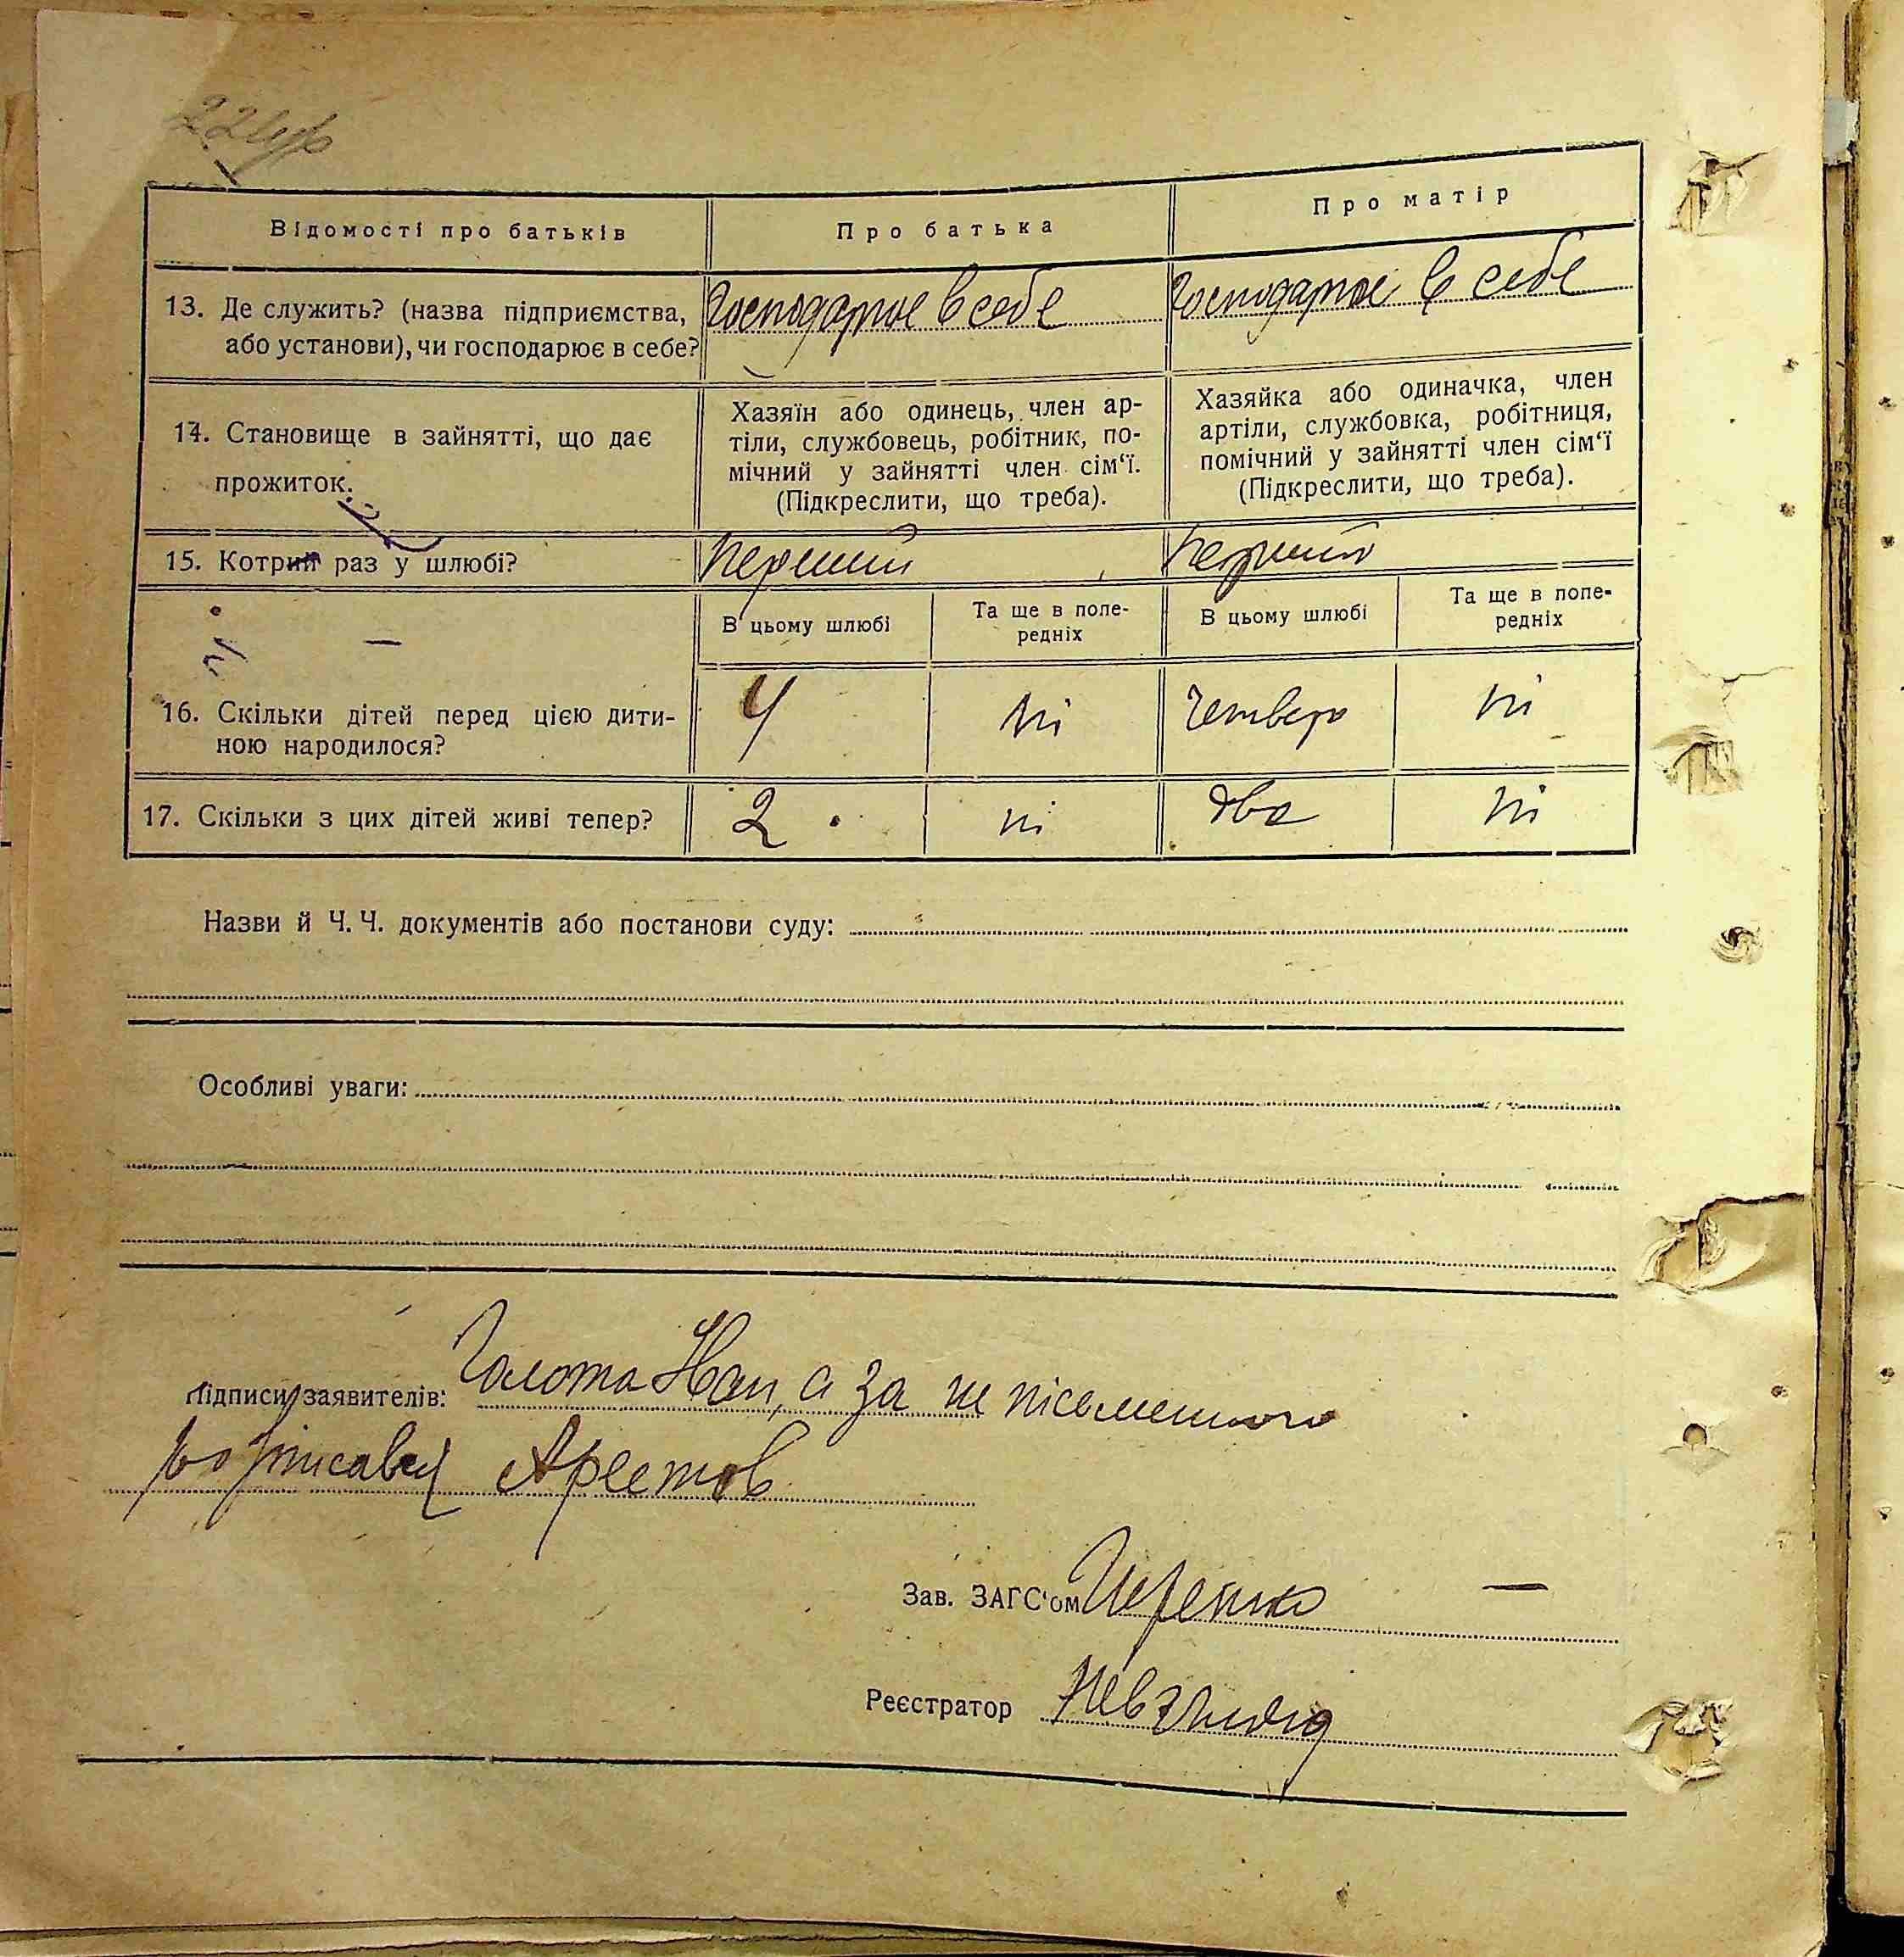 Відомості про батьків
Про батька
Про матір
13. Де служить? (назва підприємства, або установи), чи господарює в себе?
Господарює в себе
Господарює в себе
14. Становище в зайнятті, що дає прожиток.
Хазяїн або одинець, член ар-
тіли, службовець, робітник, по-
мічний у зайнятті член сім‘ї.
(Підкреслити, що треба).
Хазяйка або одиначка, член
артіли, службовка, робітниця,
помічний у зайнятті член сім‘ї
(Підкреслити, що треба).
15. Котрий раз у шлюбі?
Перший
Перший
В цьому шлюбі
Та ще в попе-
редніх
В цьому шлюбі
Та ще в попе-
редніх
16. Скільки дітей перед цією дити-
ною народилося?
4
ні
четверо
ні
17. Скільки з цих дітей живі тепер?
2
ні
два
ні
Назви й Ч. Ч. документів або постанови суду:
Особливі уваги:
Підписи заявителів: Голота а за не пісьменного
Арестов
Зав. ЗАГС‘ом
Реєстратор